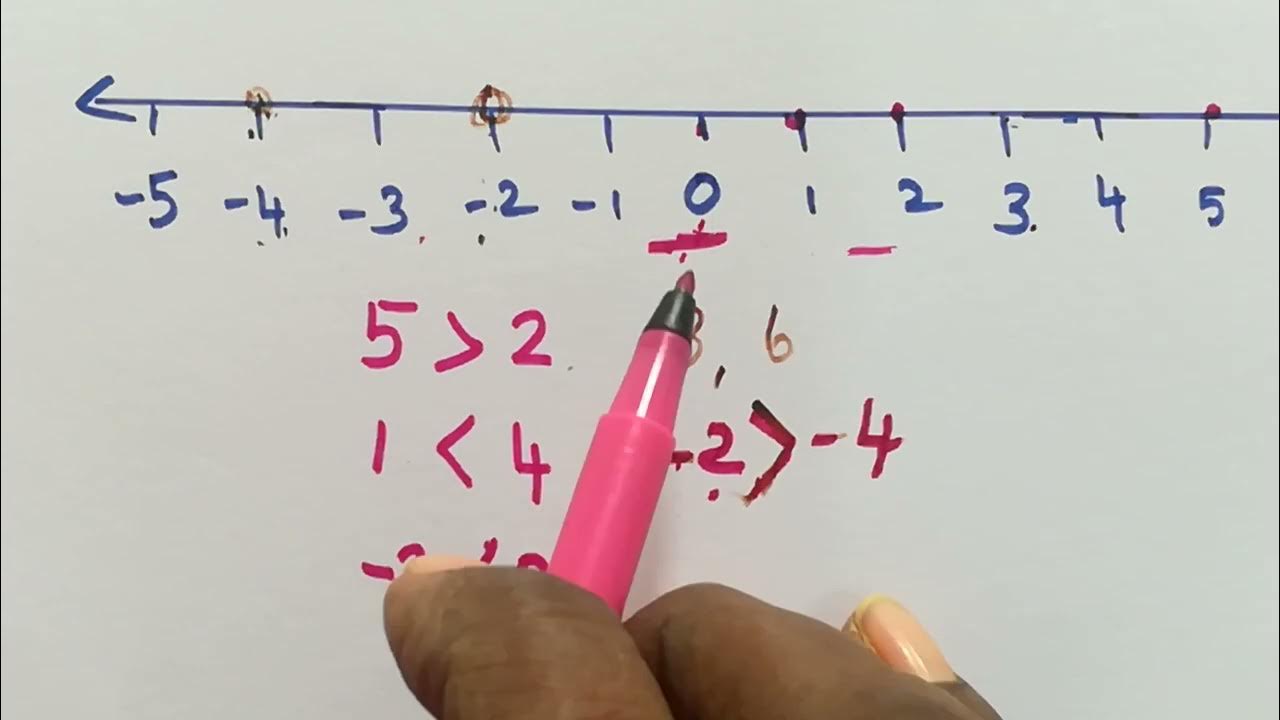 -5 -4 -3 -2 -1 0 1 2 3 4 5
5 > 2 , 6
1 < 4 -2 > -4